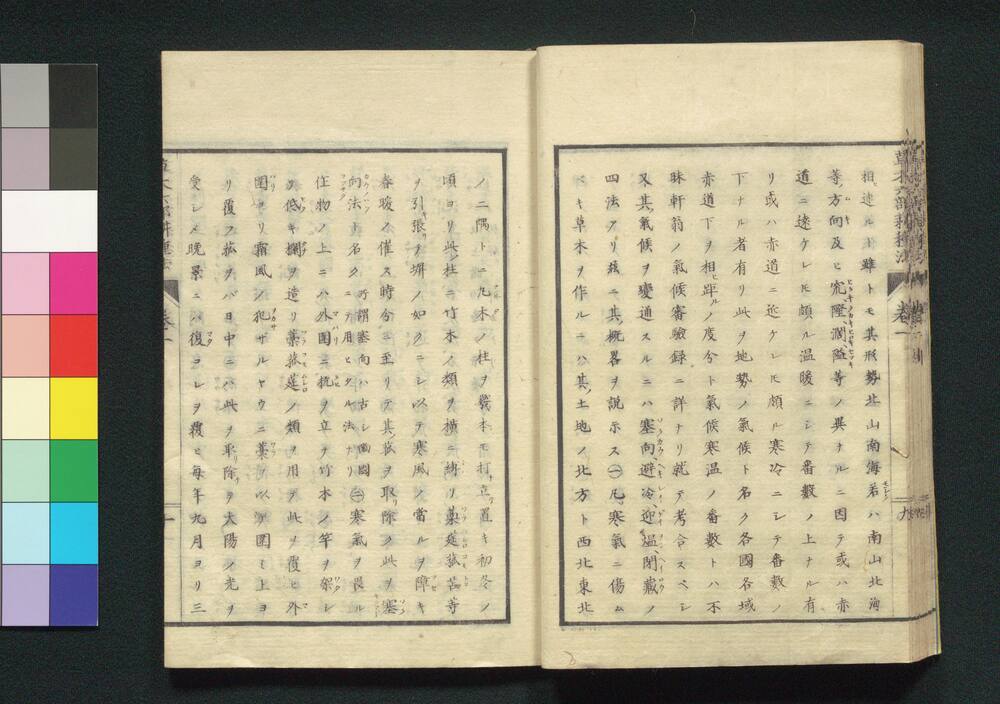 相違ルヿ雖トモ其形勢北山南海若ハ南山北海
等ノ方向及ヒ窊隆濶隘等ノ異ナルニ因テ或ハ赤
道ニ遠ケレモ頗ル温暖ニシテ番數ノ上ナル有
リ或ハ赤道ニ近ケレモ頗ル寒冷ニシテ番數ノ
下ナル者有リ此ヲ地勢ノ氣候ト名ク各國各域
赤道下ヲ相距ルノ度分ト氣候寒温ノ番數トハ不
昧軒翁ノ氣候審驗録ニ詳ナリ就テ考合スベシ
又其氣候ヲ變通スルニハ塞向避冷迎温閉蔵ノ
四法アリ茲ニ其概畧ヲ説示ス㊀凡寒氣ニ傷ム
ベキ草木ヲ作ルニハ其土地ノ北方ト西北東北
ノ二隅トニ丸木ノ柱ヲ幾本モ打立置キ初冬ノ
頃ヨリ此柱ニ竹木ノ類ヲ横ニ縛リ藁莚菰苫等
ヲ引張テ塀ノ如クニシ以テ寒風ノ當ルヲ障キ
春暖ノ催ス時分ニ至リテ其菰ヲ取リ除ク此ヲ塞
向法ト名ク所謂塞向ハ古シ豳國ニテ用ヒタル法ナリ㊁寒氣ヲ畏ル
作物ノ上ニハ外圍ニ杭ヲ立テ竹木ノ竿ヲ架シ
テ低キ棚ヲ造リ藁菰莚ノ類ヲ用テ此ヲ覆ヒ外
圍ヨリ霜風ノ犯サザルヤウニ藁ヲ以テ圍ミ上ヨ
リ覆フ菰ヲバ日中ニハ此ヲ取除テ大陽ノ光ヲ
受シメ晩景ニハ復コレヲ覆ヒ毎年九月ヨリ三
卷一
九